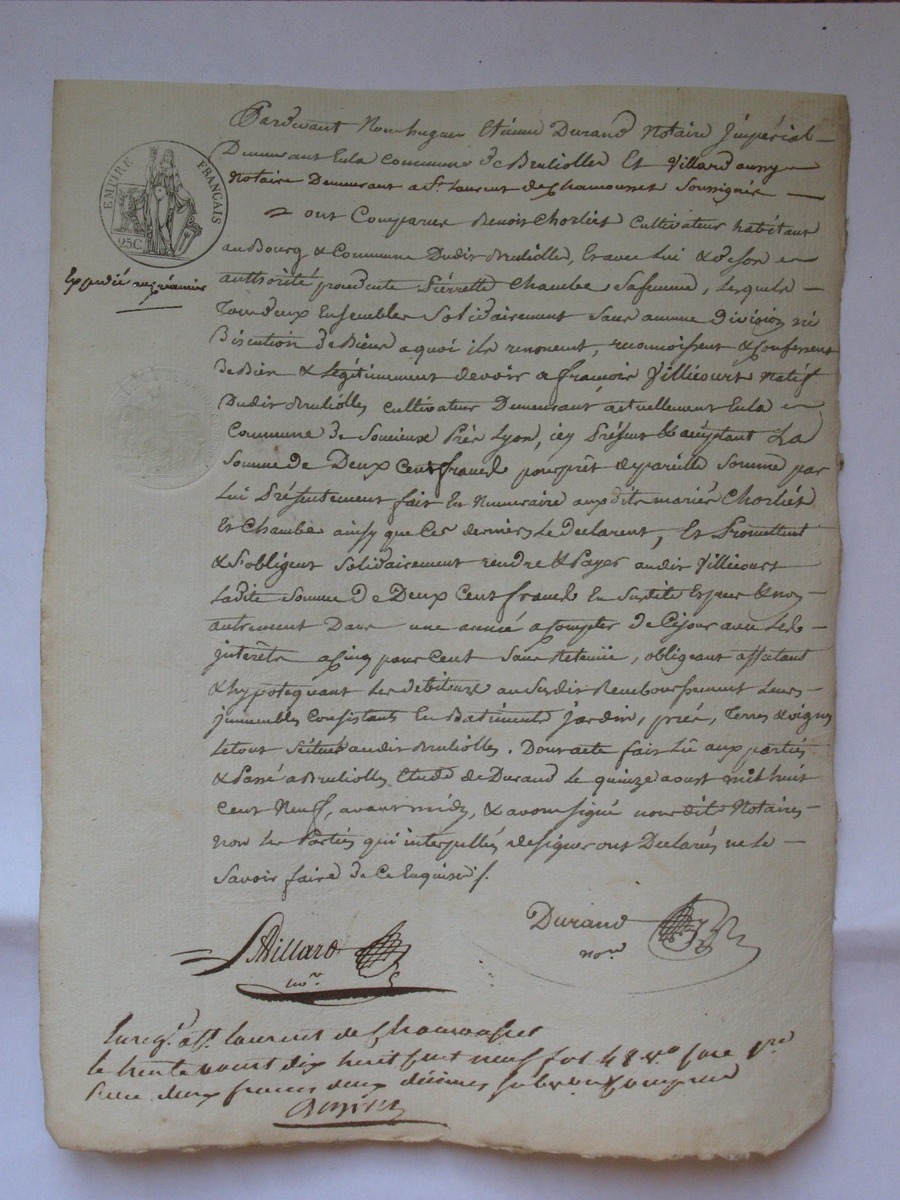 Pardevant Nous hugues Etienne Durand Notaire Jmpérial
Demeurant Enla Commune de Brulliolles Et Villard aussy
Notaire Demeurant a St Laurent de Chamousset Soussignés
EMPIRE FRANÇAIS
25C.
ont Comparus Benoit Chorliet Cultivateur habitant
au Bourg & Commune Dudit Brulliolles, Et avec Lui & de Son
Expedié au créancier
authorité procédente Pierrette Chambe Safemme, Lesquels
Tous deux Ensembles Solidairement Sans aucune Division ni
Discution de Biens a quoi ils renoncent, reconnoissent & Confessent
de Bien & Légitimement devoir a francois Villicourt Natif
Dudit Brulliolles cultivateur Demeurant actuellement Enla
Commune de Soucieux Près Lyon, icy Présent & acceptant La
Somme de Deux Cent francs pour prêt de pareille Somme par
Lui Présentement fait En Numeraire auxdits mariés Chorliet
Et Chambe ainsy que Ces derniers Le Déclarent, Et Promettent
& S'obligent Solidairement rendre & Payer audit Villicourt
Ladite Somme de Deux Cent francs En Susdite Espece & non
autrement Dans une année a Compter de Cejour avec Les
jntérêts a Cinq pour Cent Sans Retenüe, obligeant affectant
& hypotequant Les débiteurs au Susdit Remboursement Leurs
jmmeubles Consistants En Batiments jardin, prés, Terres & vignes
Letout Scitués audit Brulliolles. Dont acte fait Lû aux parties
& Passé a Brulliolles Etude de Durand Le quinze aoust mil huit
Cent Neuf, avant midy, & avons signé nous dit Notaires
non Les Parties qui interpellés de signer ont Déclarés ne Le
Savoir faire de Ce Enquises /.
Durand
nore
Villard
nore
Enregé a St. Laurent de Chamousset
le trente aout dix huit cent neuf fol 48 vo case 1re
Recu deux francs deux décimes subvention comprise